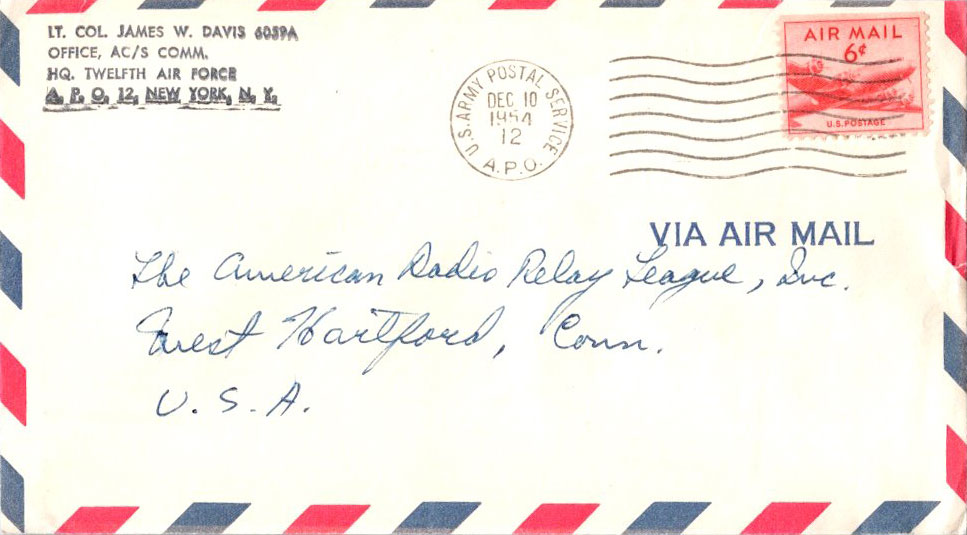 LT. COL. JAMES W. DAVIS 6039A
OFFICE, AC/S COMM.
HQ. TWELFTH AIR FORCE
A. P. O. 12, NEW YORK, N. Y.
U.S. ARMY POSTAL SERVICE
DEC 10
1954
12
A.P.O.
AIR MAIL
6¢
U.S. POSTAGE
VIA AIR MAIL
The American Radio Relay League, Inc.
West Hartford, Conn.
U. S. A.